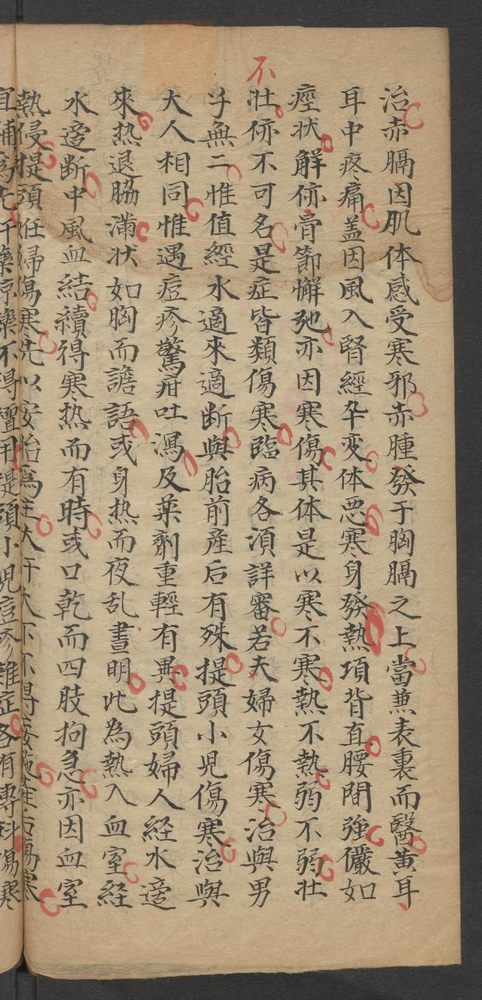 治赤膈因肌体感受寒邪赤腫發于胸膈之上當兼表裏而醫黄耳
耳中疼痛盖因風入腎經卒变体恶寒身發熱項背直腰間強儼如
痙状解㑊骨節懈弛亦因寒傷其体是以寒不寒熱不熱弱不弱壮
不
壮㑊不可名是症皆類傷寒臨病各湏詳審若夫婦女傷寒治與男
子無二惟值經水適來適断與胎前産后有殊提頭小児傷寒治與
大人相同惟遇痘疹驚疳吐瀉及薬劑重輕有異提頭婦人経水適
來热退脇满状如胸而譫語或身热而夜乱晝明此為熱入血室経
水適断中風血結續得寒热而有時或口乾而四肢拘急亦因血室
熱侵提頭妊婦傷寒先以安胎為主大汗大下不得
小児痘疹雜症各有專科傷寒